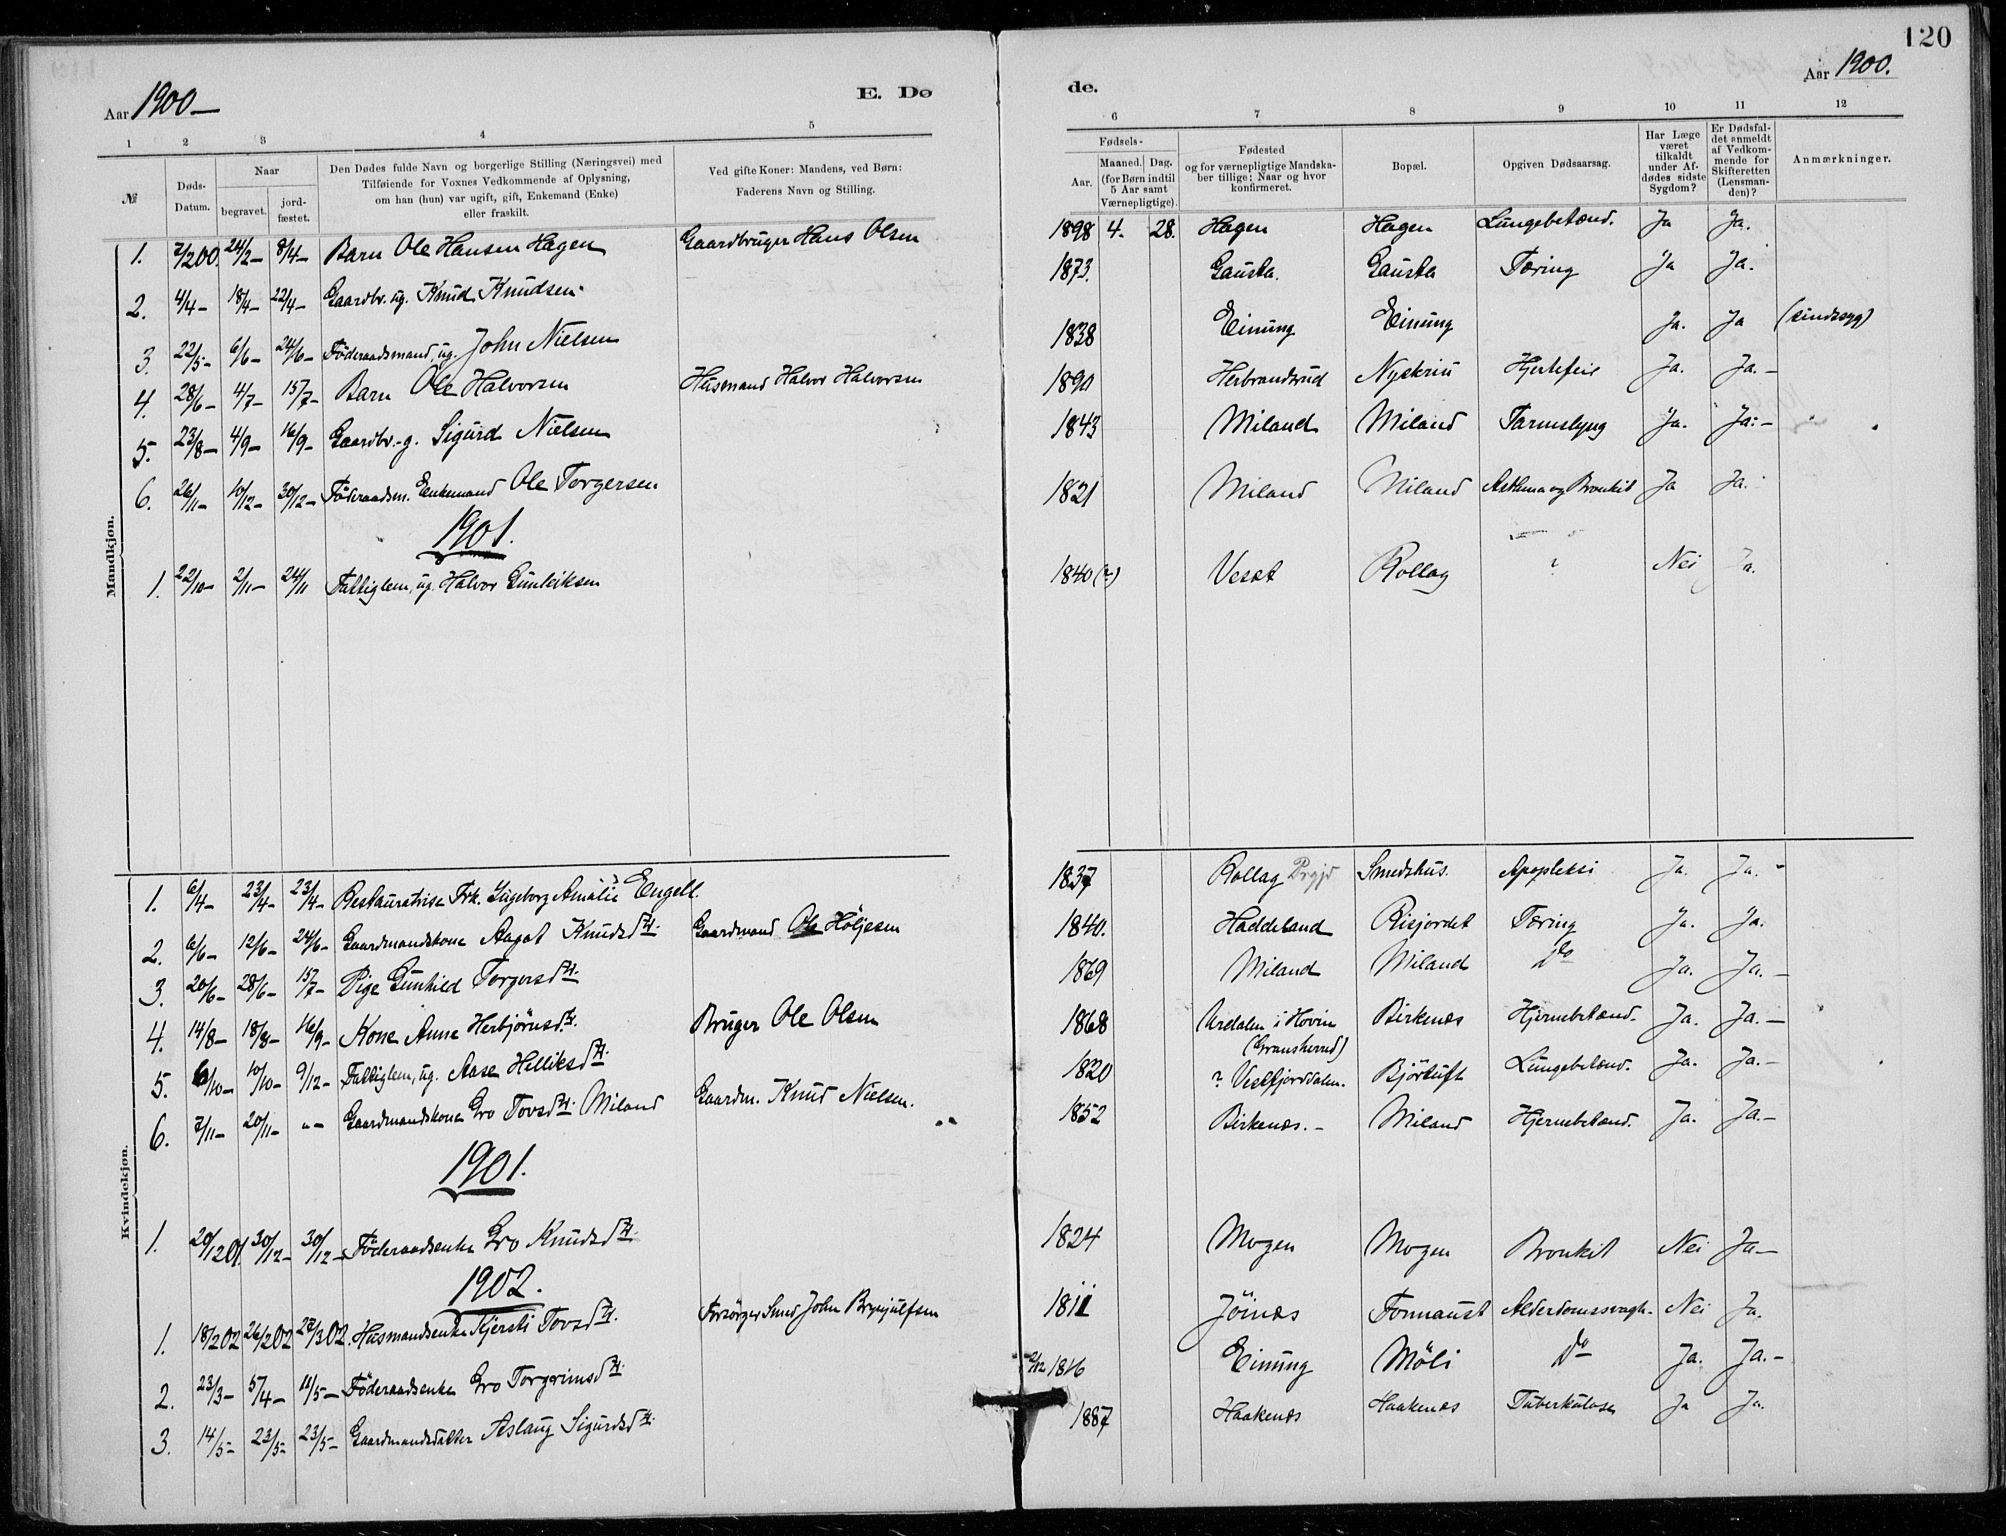 120
Aar 1900 —
E. Dø
de.
Aar 1900.
1 2 3 4 5
6 7 8 9 10 11 12
№
Døds-Datum.
Naar
begravet.
jord-fæstet.
Den Dødes fulde Navn og borgerlige Stilling (Næringsvei) med
Tilføiende for Voxnes Vedkommende af Oplysning,
om han (hun) var ugift, gift, Enkemand (Enke)
eller fraskilt.
Ved gifte Koner: Mandens, ved Børn:
Faderens Navn og Stilling.
Fødsels-
Aar.
Maaned. Dag.
(for Børn indtil
5 Aar samt
Værnepligtige).
Fødested
og for værnepligtige Mandska-
ber tillige: Naar og hvor
konfirmeret.
Bopæl.
Opgiven Dødsaarsag.
Har Læge
været
tilkaldt
under Af-
dødes sidste
Sygdom?
Er Dødsfal-
det anmeldt
af Vedkom-
mende for
Skifteretten
(Lensman-
den)?
Anmærkninger.
Mandkjøn.
1. 7/2 00. 24/2 – 8/4 – Barn Ole Hansen Hagen Gaardbruger Hans Olsen 1898 4. 28. Hagen Hagen Lungebetænd. Ja Ja.
2. 4/4 – 18/4 – 22/4 – Gaardbr. ug. Knud Knudsen 1873. Gausta. Gausta Tæring Ja Ja.
3. 22/5 – 6/6 – 24/6 – Föderaadsmand, ug. John Nielsen 1838 Einung Einung Ja. Ja (sindssyg)
4. 28/6 – 4/7 – 15/7 – Barn Ole Halvorsen Husmand Halvor Halvorsen 1890 Herbrandsrud Nyskriu Hjertefeil Ja. Ja. –
5. 23/8 – 4/9 – 16/9 – Gaardbr. – g. Sigurd Nielsen 1843 Miland Miland Tarmslyng Ja. Ja. –
6. 26/11 – 10/12 – 30/12 – Föderaadsm. Enkemand Ole Torgersen 1821 Miland Miland Asthma og Bronkit Ja Ja.
1901.
1. 22/10 – 2/11 – 24/11 Fattiglem, ug. Halvor Gunleiksen 1840 (?) Vesæt Rollag ? Nei Ja.
Kvindekjøn.
1. 6/4 – 23/4 – 23/4 – Restauratrise Frk. Ingeborg Amalie Engell. 1837 Rollag Prgjd Smedshus. Apopleksi Ja. Ja.
2. 6/6 – 12/6 – 24/6 – Gaardmandskone Aagot Knudsdtr. Gaardmand Ole Höljesen 1840. Haddeland Risjordet Tæring Ja. Ja.
3. 20/6 – 28/6 – 15/7 – Pige Gunhild Torgersdtr. 1869 Miland Miland Do Ja. Ja. –
4. 14/8 – 18/8 – 16/9 – Kone Anne Herbjörnsdtr. Bruger Ole Olsen 1868 Urdalen i Hovin (Gransherred) Birkenæs Hjernebetænd. Ja. Ja. –
5. 6/10 – 10/10 – 9/12 – Fattiglem, ug. Aase Helliksdtr 1820 ? Vestfjorddalen. Björtuft Lungebetænd. Ja. Ja. –
6. 7/11 – 20/11 – „ – Gaardmandskone Gro Tovsdtr. Miland Gaardm. Knud Nielsen. 1852 Birkenæs. – Miland Hjernebetænd. Ja. Ja. –
1901.
1. 20/12 01. 30/12 – 30/12 – Föderaadsenke Gro Knudsdtr. 1824 Mogen Mogen Bronkit Nei Ja –
1902.
1. 18/2 02 26/2 02 28/3 02. Husmandsenke Kjersti Tovsdtr. Forsörger Smed John Brynjulfsen 1811 Jöinæs Fornaust Alderdomssvagh. Nei Ja.
2. 23/3 – 5/4 – 11/5 – Föderaadsenke Gro Torgrimsdtr. 2/12 1816 Einung Möli Do Ja. Ja. –
3. 14/5 – 23/5 – 23/5 – Gaardmandsdatter Aslaug Sigurdsdtr. 1887 Haakenæs Haakenæs Tuberkulose Ja Ja.